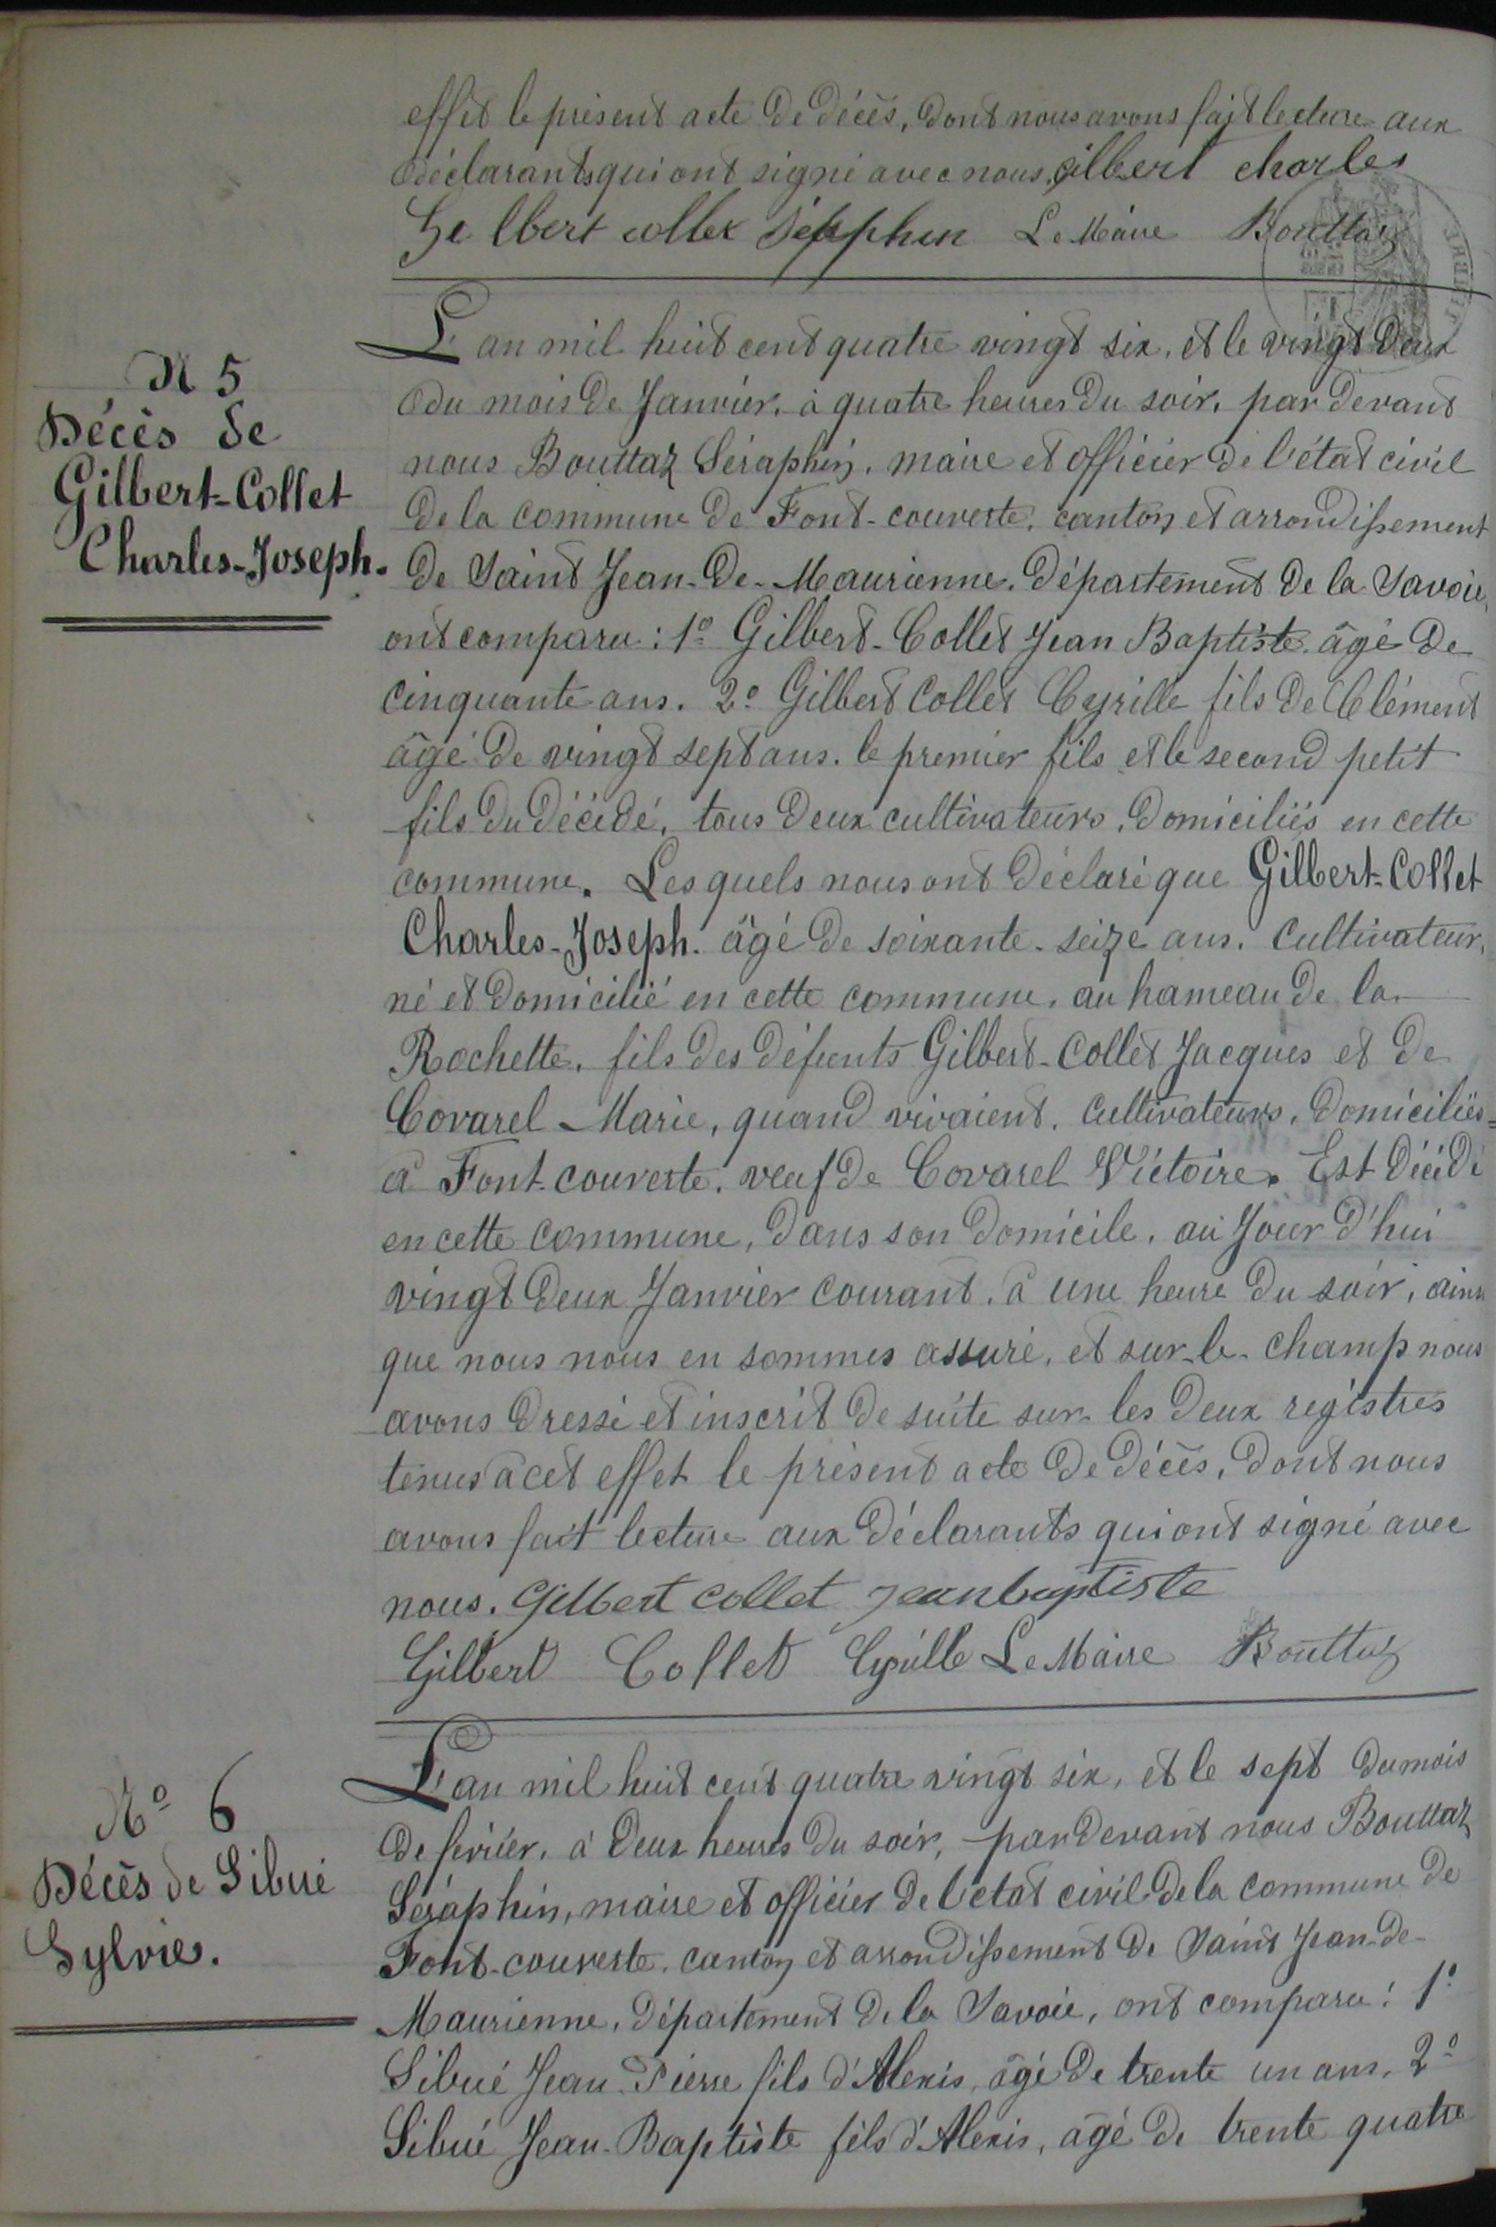 effet le présent acte de décès, dont nous avons fait lecture aux
déclarants qui ont signé avec nous. gilbert charles
Gelbert collex Séraphin Le Maire Bouttaz
N 5
Décès de
Gilbert-Collet
Charles-Joseph.
L'an mil huit cent quatre vingt six, et le vingt deux
du mois de Janvier, à quatre heures du soir, par devant
nous Bouttaz Séraphin, maire et officier de l'état civil
de la commune de Font-couverte, canton et arrondissement
de Saint Jean-de-Maurienne, département de la Savoie,
ont comparu : 1º Gilbert-Collet Jean Baptiste âgé de
cinquante ans. 2º Gilbert Collet Cyrille fils de Clément
âgé de vingt sept ans. le premier fils et le second petit
fils du décédé, tous deux cultivateurs, domiciliés en cette
commune. Les quels nous ont déclaré que Gilbert-Collet
Charles-Joseph. âgé de soixante-seize ans. Cultivateur,
né et domicilié en cette commune, au hameau de la
Rochette, fils des défunts Gilbert-Collet Jacques et de
Covarel Marie, quand vivaient, cultivateurs, domiciliés
à Font-couverte, veuf de Covarel Victoire. Est décédé
en cette commune, dans son domicile, au Jour d'hui
vingt deux Janvier courant, à une heure du soir, ainsi
que nous nous en sommes assuré, et sur-le-champ nous
avons dressé et inscrit de suite sur les deux registres
tenus à cet effet le présent acte de décès, dont nous
avons fait lecture aux déclarants qui ont signé avec
nous. Gilbert collet jeanbaptiste
Gilbert Collet Cyrille Le Maire Bouttaz
Nº 6
Décès de Sibué
Sylvie.
L'an mil huit cent quatre vingt six, et le sept du mois
de février, à deux heures du soir, par devant nous Bouttaz
Séraphin, maire et officier de l'etat civil de la commune de
Font-couverte, canton et arrondissement de Saint Jean-de-
Maurienne, département de la Savoie, ont comparu : 1º
Sibué Jean-Pierre fils d'Alexis, âgé de trente un ans. 2º
Sibué Jean-Baptiste fils d'Alexis, âgé de trente quatre